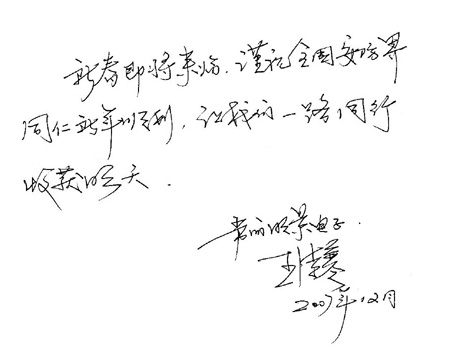 新春即将来临，谨祝全国安防界
同仁新年顺利，让我们一路同行
收获明天．
常州明景电子
王
2007年12月